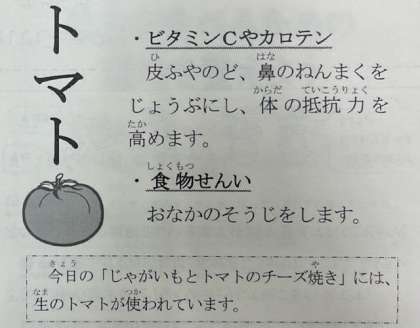 トマト
・ビタミンCやカロテン
皮ふやのど、鼻のねんまくを
じょうぶにし、体の抵抗力を
高めます。
・食物せんい
おなかのそうじをします。
今日の「じゃがいもとトマトのチーズ焼き」には、
生のトマトが使われています。